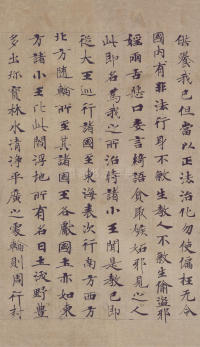 供養我已但當以正法治化勿使偏枉无令
國內有非法行身不煞生教人不煞生偷盜邪
婬兩舌惡口妄言綺語貪取嫉妬邪見之人
此即名為我之所治時諸小王聞是教已即
從大王巡行諸國至東海表次行南方西方
北方隨輪所至其諸國王各獻國土亦如東
方諸小王比此閻浮地所有名曰土沃野豐
多出珎寶林水清淨平廣之處輪則周行封